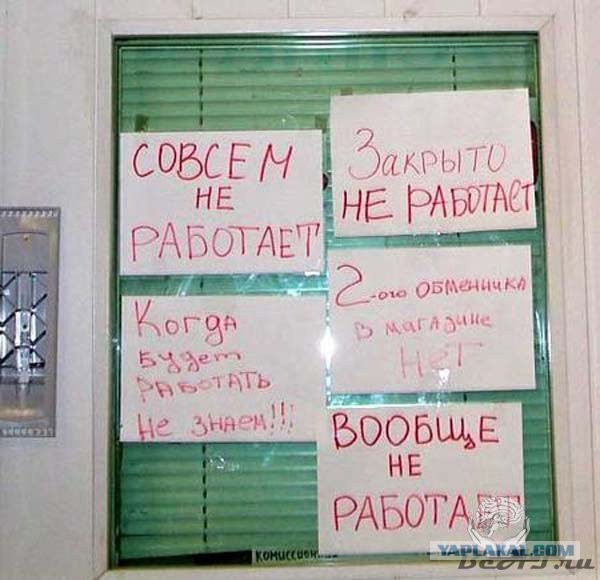 СОВСЕМ
НЕ
РАБОТАЕТ
Закрыто
НЕ РАБОТАЕТ
Когда
будет
РАБОТАТЬ
Не знаем!!!
2-ого обменничка
в магазине
НЕТ
ВООБЩЕ
НЕ
РАБОТАЕТ
YAPLAKAL.COM